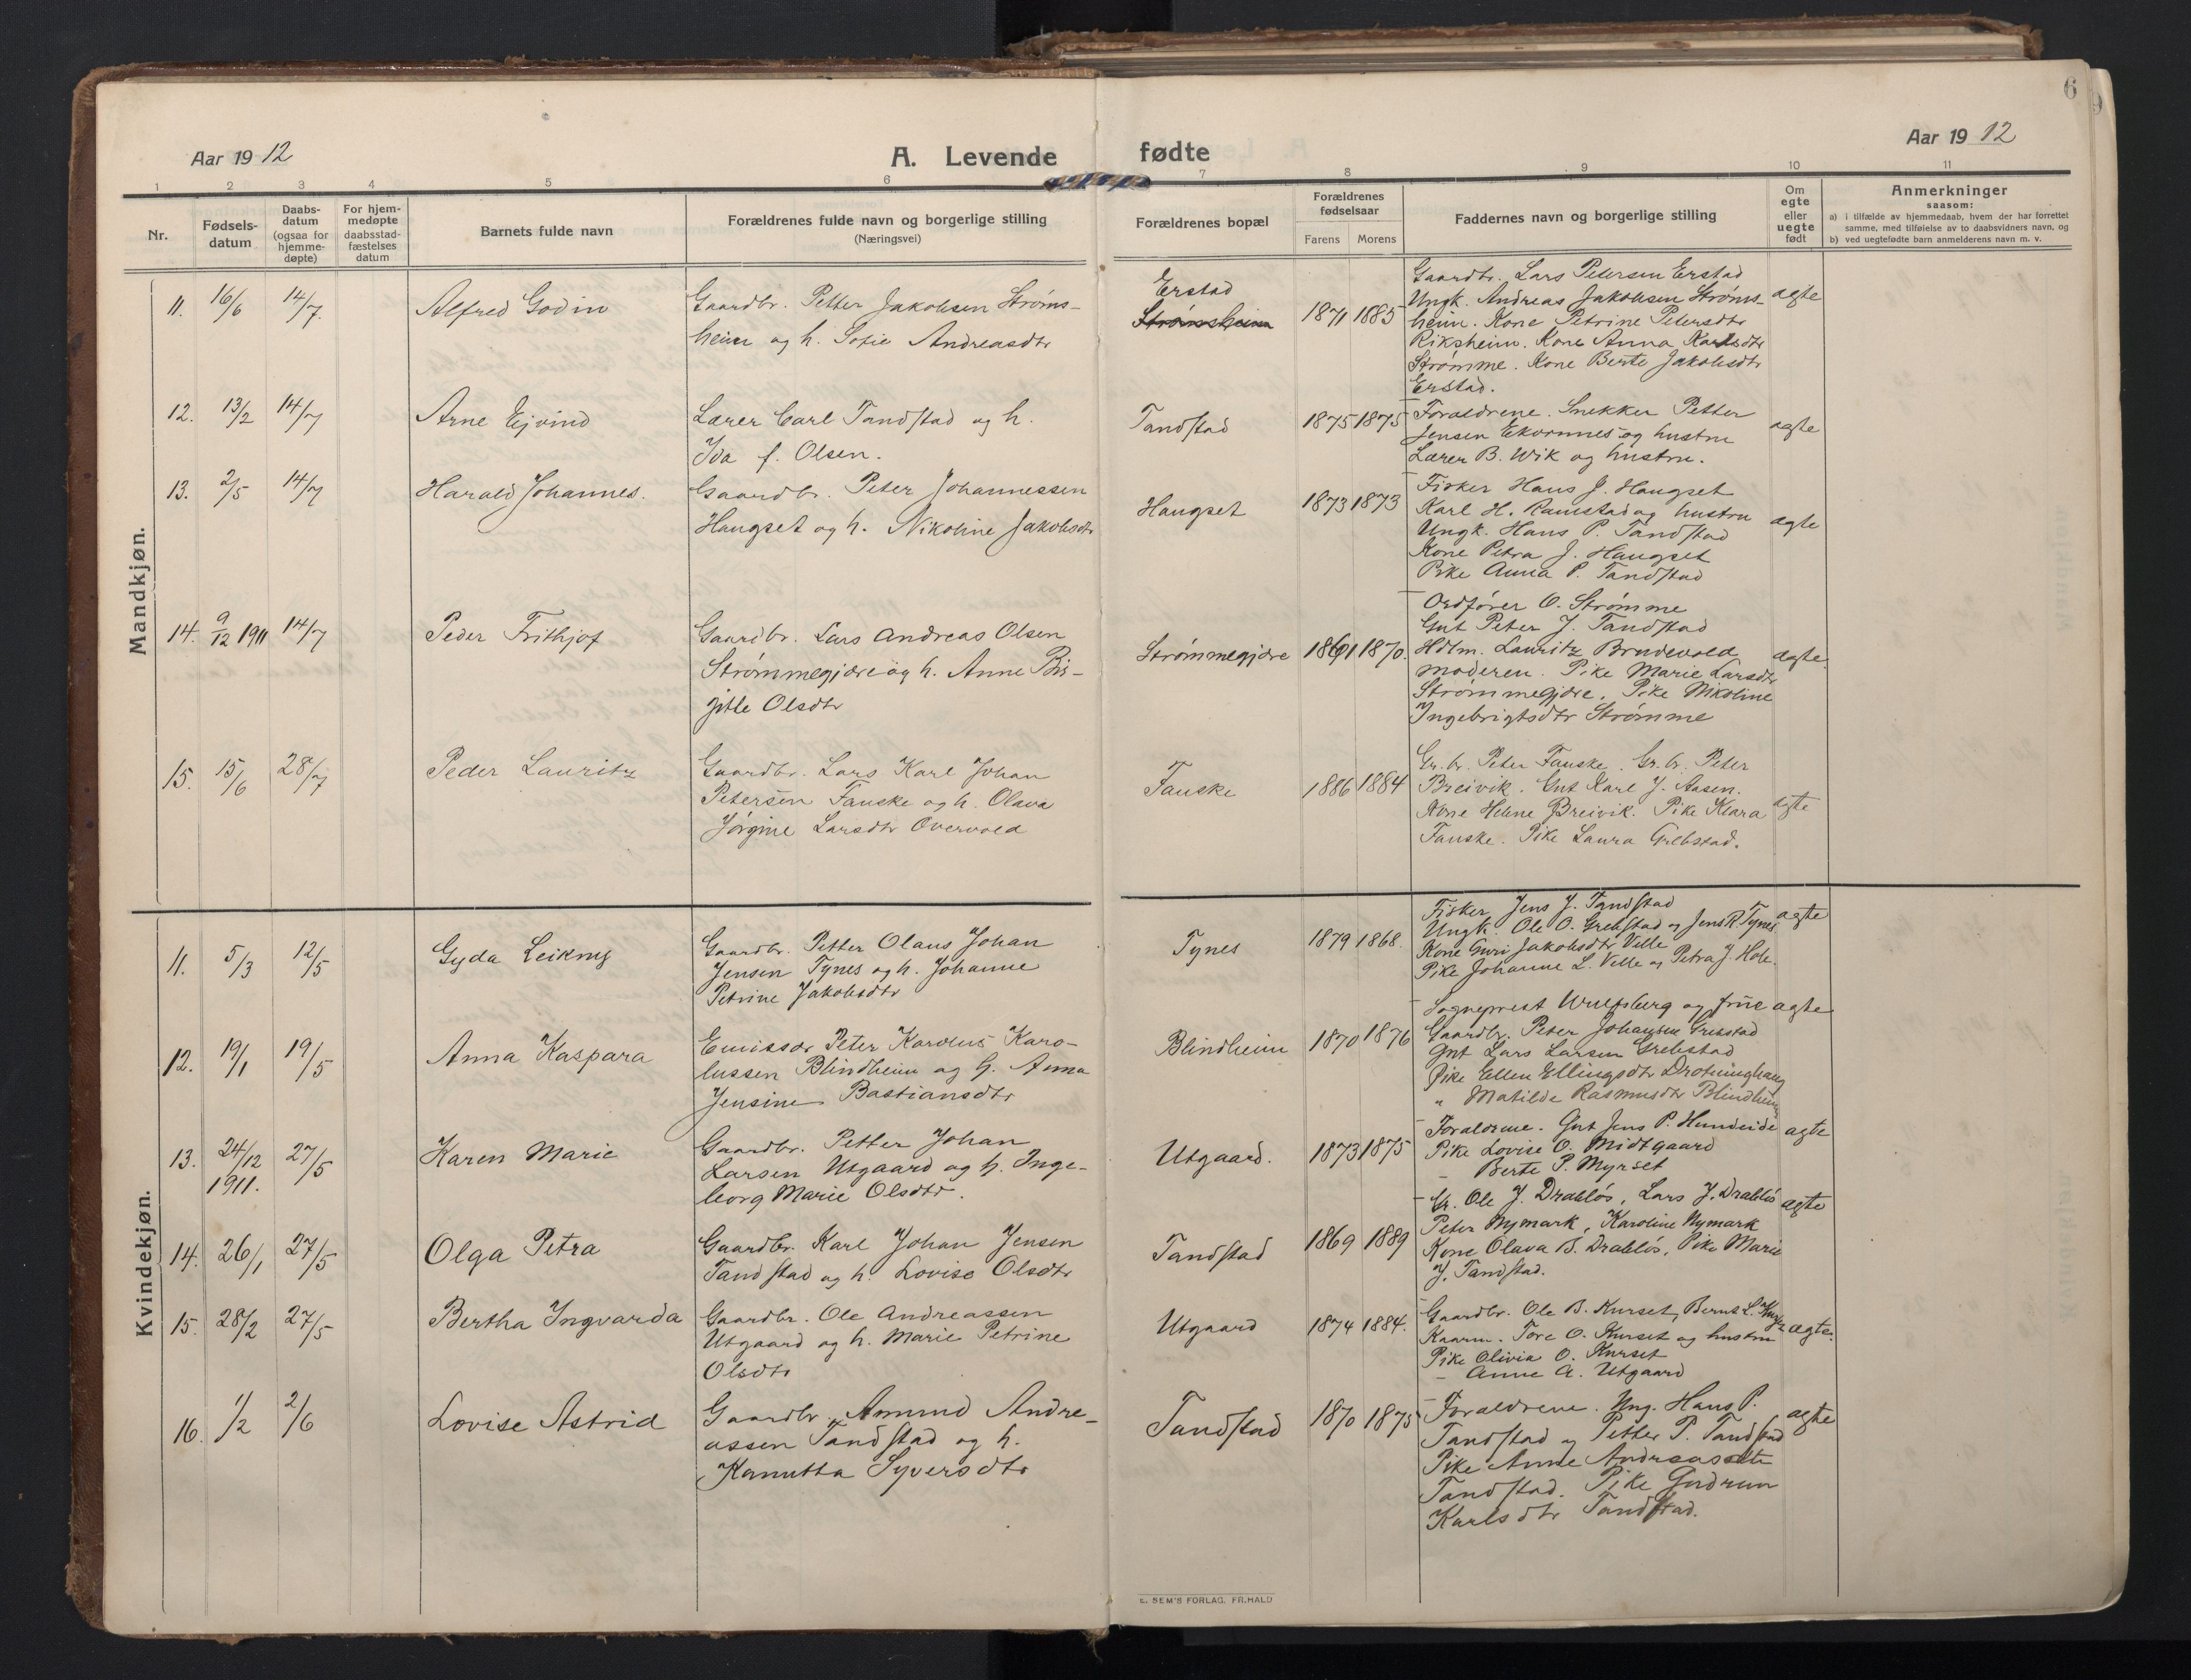 6
Aar 1912
A. Levende fødte
Aar 1912
1 2 3 4 5 6 7 8 9 10 11
Nr.
Fødsels-
datum
Daabs-
datum
(ogsaa for
hjemme-
døpte)
For hjem-
medøpte
daabsstad-
fæstelses
datum
Barnets fulde navn
Forældrenes fulde navn og borgerlige stilling
(Næringsvei)
Forældrenes bopæl
Forældrenes
fødselsaar
Farens Morens
Faddernes navn og borgerlige stilling
Om
egte
eller
uegte
født
Anmerkninger
saasom:
a) i tilfælde av hjemmedaab, hvem der har forrettet
samme, med tilføielse av to daabsvidners navn, og
b) ved uegtefødte barn anmelderens navn m. v.
Mandkjøn.
11. 16/6 14/7. Alfred Godin
Gaardbr. Petter Jakobsen Strøms-
heim og h. Sofie Andreasdtr
Erstad
Strømsheim
1871 1885
Gaardbr. Lars Petersen Erstad
Ungk. Andreas Jakobsen Strøms-
heim. Kone Petrine Petersdtr
Riksheim. Kone Anna Karlsdtr
Strømme. Kone Berte Jakobsdtr
Erstad.
ægte
12. 13/2 14/7 Arne Ejvind
Lærer Carl Tandstad og h.
Ida f. Olsen.
Tandstad
1875 1875
Foraldrene. Snekker Petter
Jensen Ekornnes og hustru
Lærer B. Wik og hustru.
ægte
13. 2/5 14/7 Harald Johannes.
Gaardbr. Peter Johannessen
Haugset og h. Nikoline Jakobsdtr
Haugset
1873 1873
Fisker Hans J. Haugset
Karl H. Ramstad og hustru
Ungk. Hans P. Tandstad
Kone Petra J. Haugset
Pike Anna P. Tandstad
ægte
14. 9/12 1911 14/7 Peder Frithjof
Gaardbr. Lars Andreas Olsen
Strømmegjære og h. Anne Bir-
gitte Olsdtr
Strømmegjære
1861 1870.
Ordfører O. Strømme
Gut Peter J. Tandstad
Hdlm. Lauritz Brudevold
Moderen. Pike Marie Larsdtr
Strømmegjære. Pike Nikoline
Ingebrigtsdtr Strømme
ægte.
15. 15/6 28/7 Peder Lauritz
Gaardbr. Lars Karl Johan
Petersen Fauske og h. Olava
Jørgine Larsdtr Overvold
Fauske
1886 1884
Gr. br. Peter Fauske. Gr. br. Peter
Breivik. Gut Karl J. Aasen.
Kone Helene Breivik. Pike Klara
Fauske. Pike Laura Grebstad.
ægte
Kvindekjøn.
11. 5/3 12/5 Gyda Leikny
Gaardbr. Petter Olaus Johan
Jensen Tynes og h. Johanne
Petrine Jakobsdtr
Tynes
1879 1868.
Fisker Jens J. Tandstad
Ungk. Ole O. Grebstad og Jens R. Tynes
Kone Guri Jakobsdtr Velle
Pike Johanne L. Velle og Petra J. Hole.
ægte
12. 19/1 19/5 Anna Kaspara
Emissær Peter Karolus Karo-
lussen Blindheim og h. Anna
Jensine Bastiansdtr
Blindheim
1870 1876
Sogneprest Wulfsberg og frue
Gaardbr. Peter Johansen Grebstad
Gut Lars Larsen Grebstad
Pike Ellen Ellingsdtr Drotninghaug
" Matilde Rasmusdtr Blindheim
ægte
13. 24/12 1911. 27/5 Karen Marie
Gaardbr. Petter Johan
Larsen Utgaard og h. Inge-
borg Marie Olsdtr.
Utgaard.
1873 1875
Foraldrene. Gut Jens P. Hundeide
Pike Lovise O. Midtgaard
- Berte P. Myrset
ægte
14. 26/1 27/5 Olga Petra
Gaardbr. Karl Johan Jensen
Tandstad og h. Lovise Olsdtr
Tandstad
1869 1889
Gr. Ole J. Drabløs, Lars J. Drabløs
Peter Nymark, Karoline Nymark
Kone Olava B. Drabløs, Pike Marie
J. Tandstad.
ægte
15. 28/2 27/5 Bertha Ingvarda
Gaardbr. Ole Andreassen
Utgaard og h. Marie Petrine
Olsdtr
Utgaard
1874 1884.
Gaardbr. Ole B. Kurset, Bernt L.
Kaarm. Tore O. Kurset og hustru
Pike Olivia O. Kurset
- Anne A. Utgaard
ægte.
16. 1/2 2/6 Lovise Astrid
Gaardbr. Amund Andre-
assen Tandstad og h.
Kanutta Syversdtr
Tandstad
1870 1875
Foraldrene. Ung. Hans P.
Tandstad og Petter P. Tandstad
Pike Anne Andreasdtr
Tandstad. Pike Gudrun
Karlsdtr Tandstad.
ægte
E. SEM'S FORLAG, FR.HALD